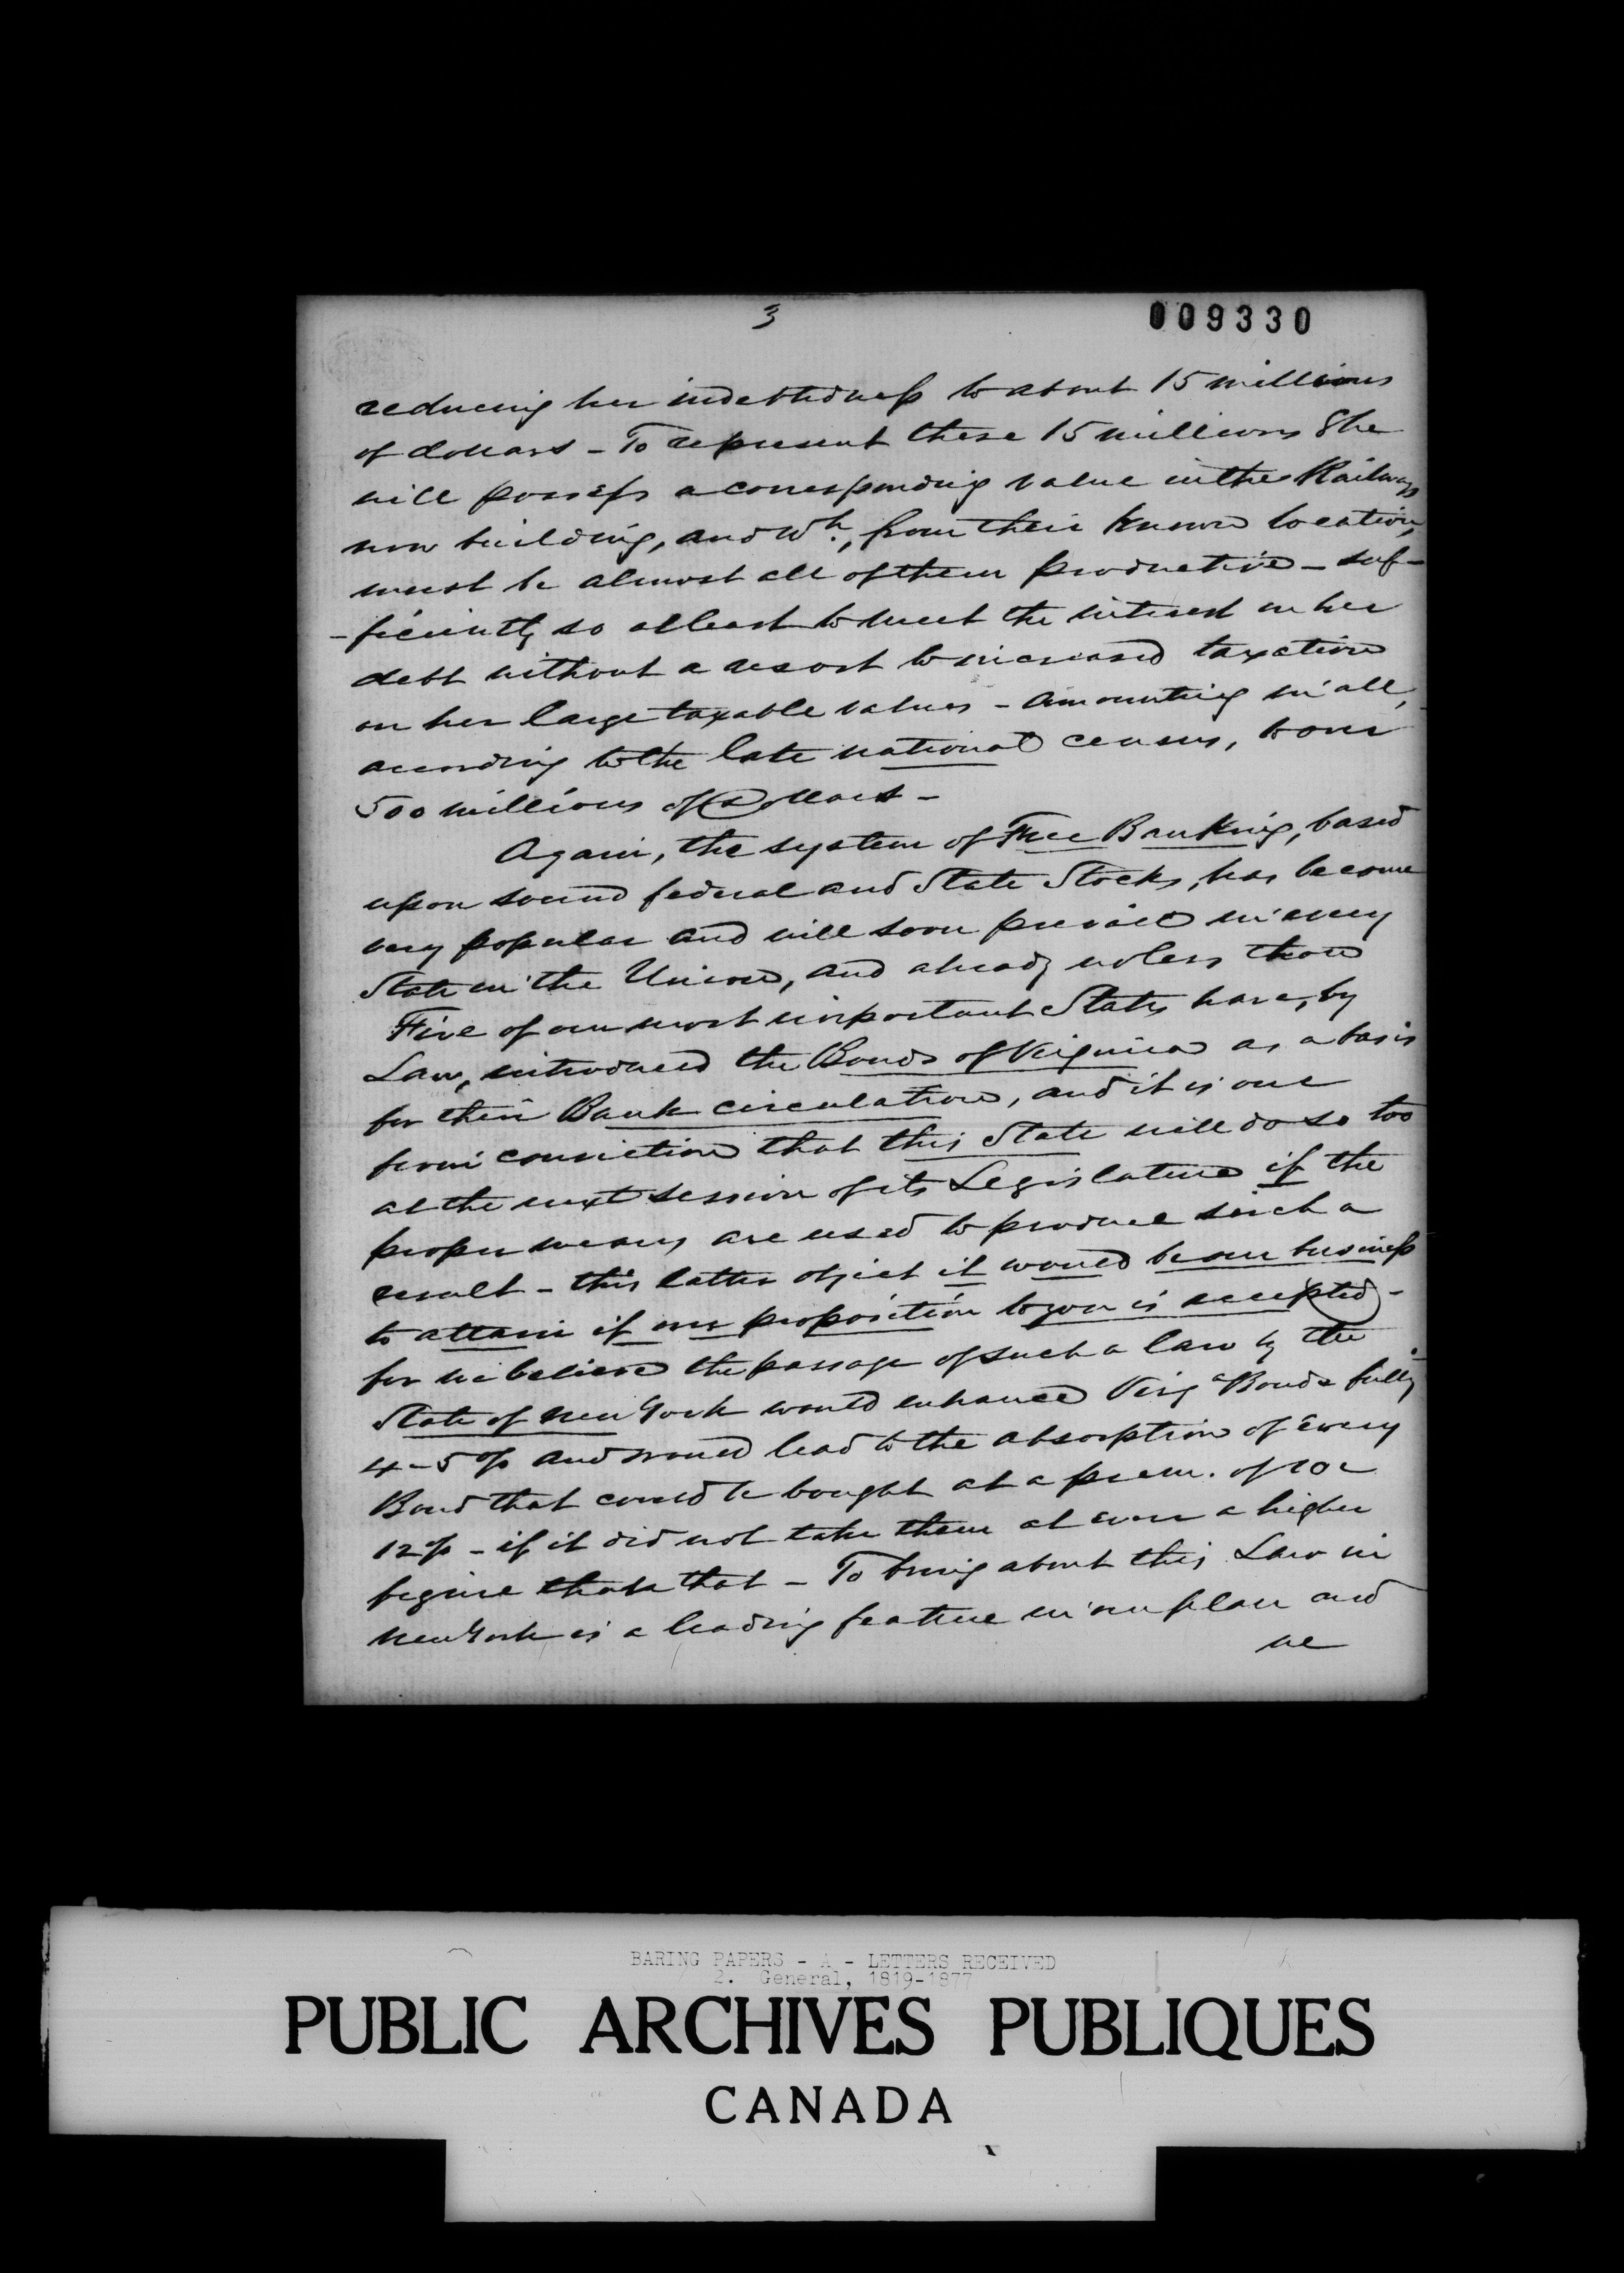 3
009330
reducing her indebtedness to about 15 millions
of dollars - To represent these 15 millions She
will possess a corresponding value in the Railways
now building, and Wh., from their known location,
must be almost all of them productive - suf-
-ficiently so at least to meet the interest on her
debt without a resort to increased taxation
on her large taxable values - amounting in all,
according to the late national census, to over
500 millions of Dollars -
Again, the system of Free Banking, based
upon sound federal and State Stocks, has become
very popular and will soon prevail in every
State in the Union, and already no less than
Five of our most important States have, by
Law, introduced the Bonds of Virginia as a basis
for their Bank circulation, and it is our
firm conviction that this State will do so too
at the next session of its Legislature if the
proper means are used to produce such a
result - this latter object it would be our business
to attain if our proposition to you is accepted -
for we believe the passage of such a law by the
State of New York would enhance Virga Bonds fully
4-5 % and would lead to the absorption of every
Bond that could be bought at a prem. of 10 a
12% - if it did not take them at even a higher
figure that - To bring about this Law in
New York is a leading feature in our plan and
we
BARING PAPERS - A - LETTERS RECEIVED
2. General, 1819-1877
PUBLIC ARCHIVES PUBLIQUES
CANADA